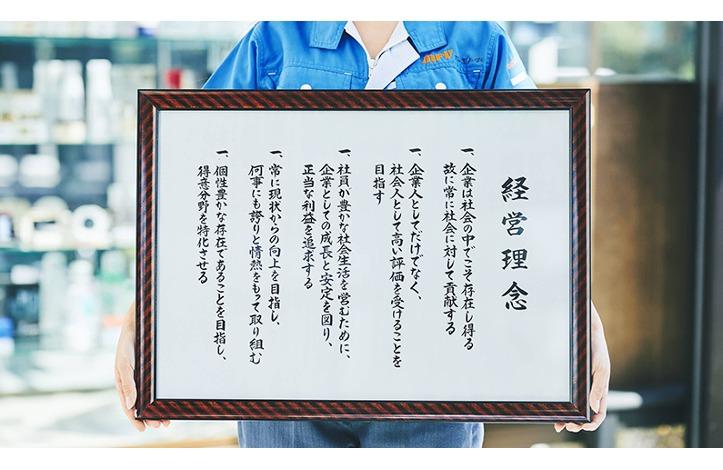 経営理念
一、企業は社会の中でこそ存在し得る
故に常に社会に対して貢献する
一、企業人としてだけでなく、
社会人として高い評価を受けることを
目指す
一、社員が豊かな社会生活を営むために、
企業としての成長と安定を図り、
正当な利益を追求する
一、常に現状からの向上を目指し、
何事にも誇りと情熱をもって取り組む
一、個性豊かな存在であることを目指し、
得意分野を特化させる